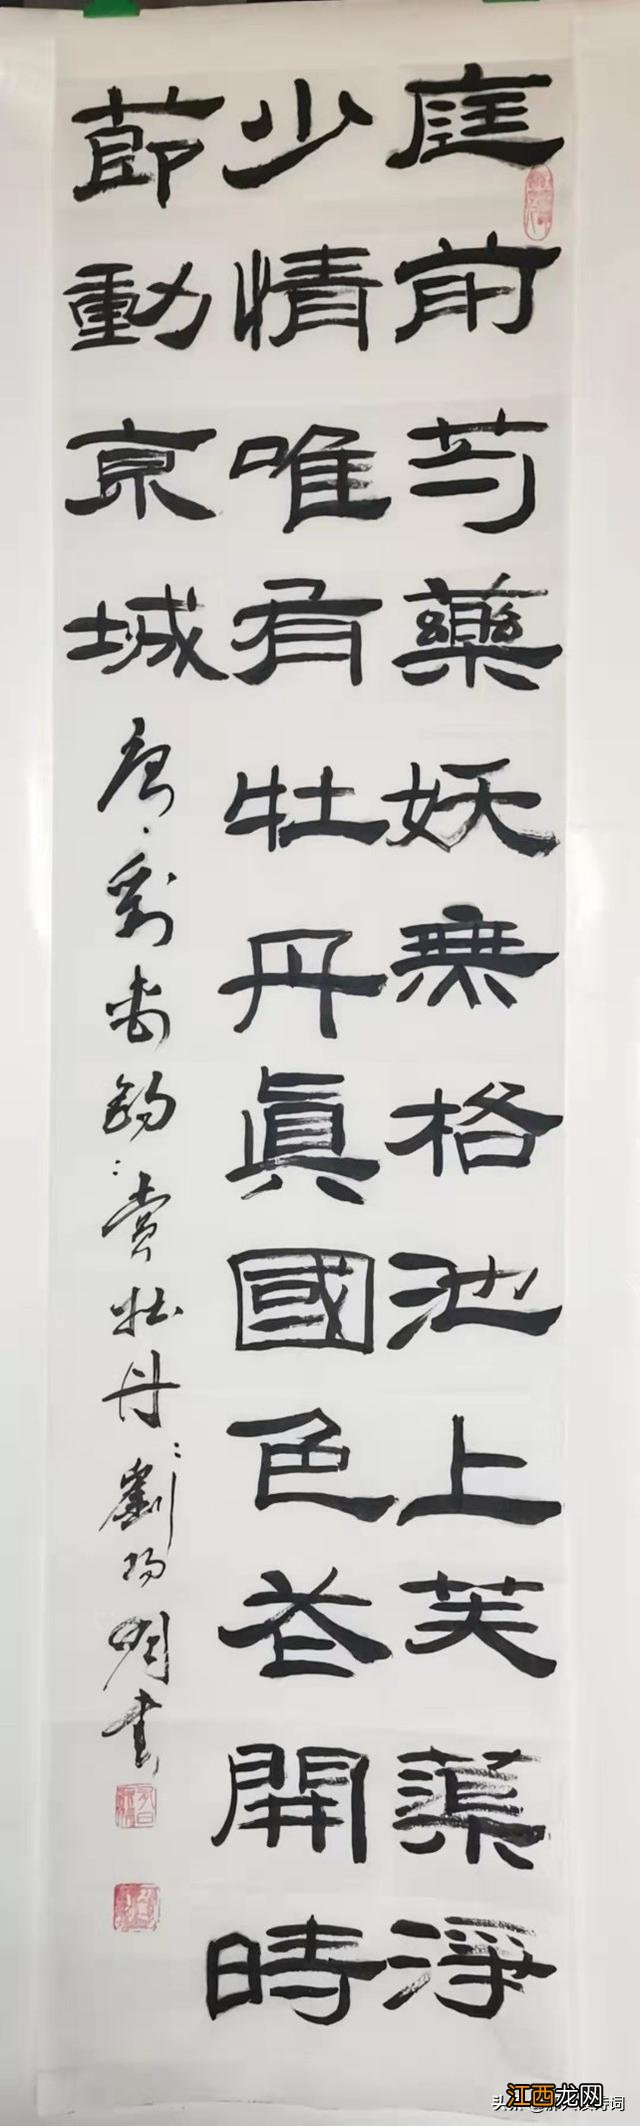 庭前芍藥妖無格池上芙蕖淨
少情唯有牡丹眞國色花開時
莭動京城
唐、劉禹錫：賞牡丹：劉陽明書
江西龙网